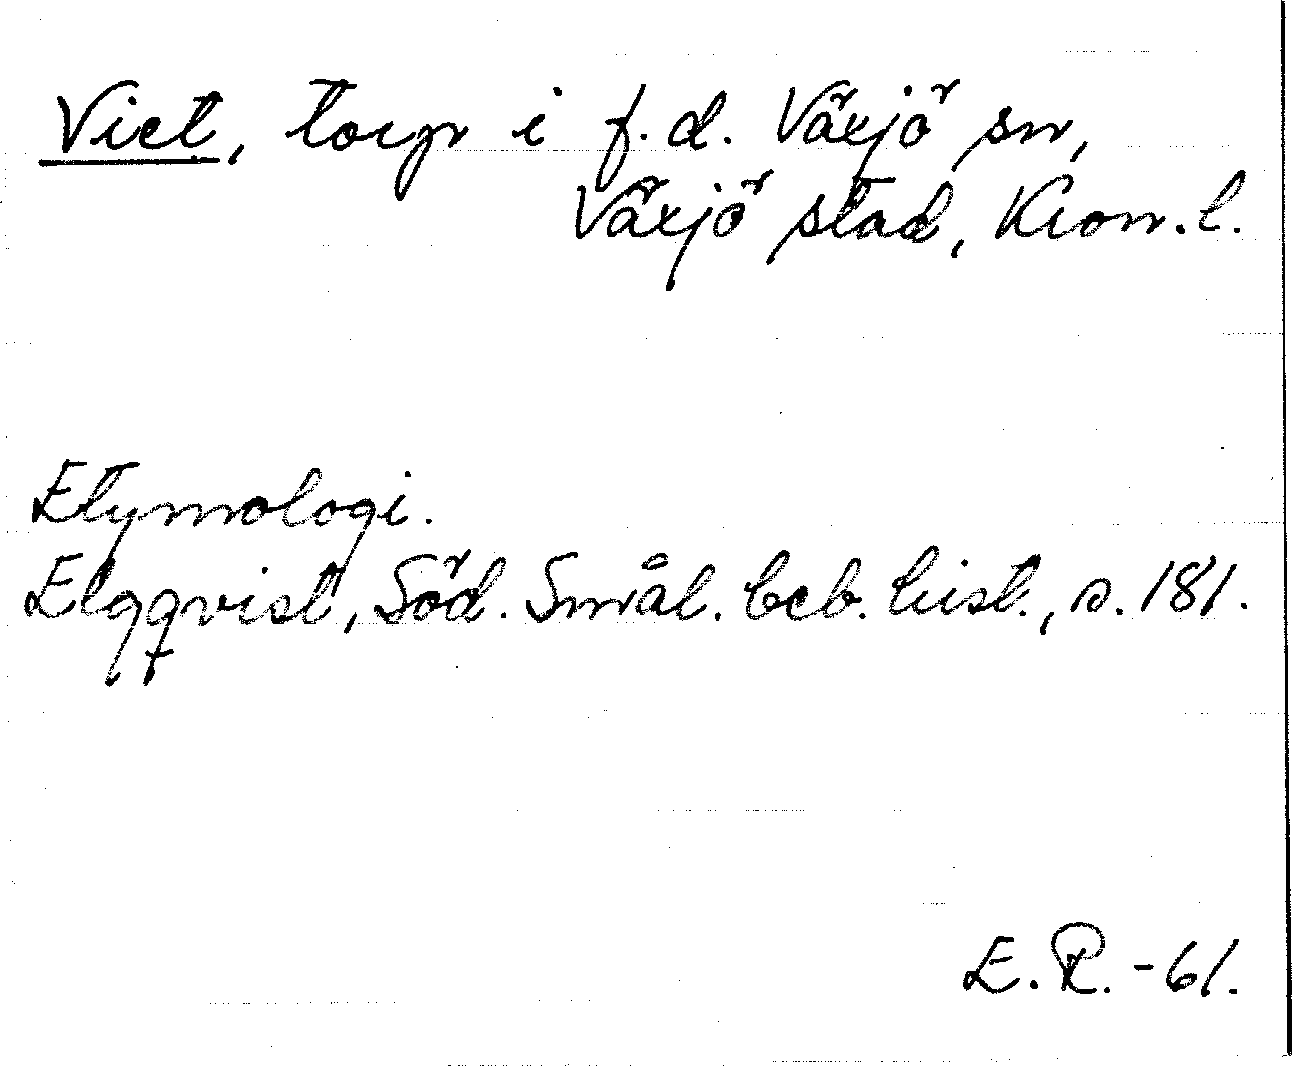 Viet, torp i f.d. Växjö sn,
Växjö stad, Kron.l.
Etymologi.
Elgqvist, Söd. Smål. beb. hist., s. 181.
E.R. -61.